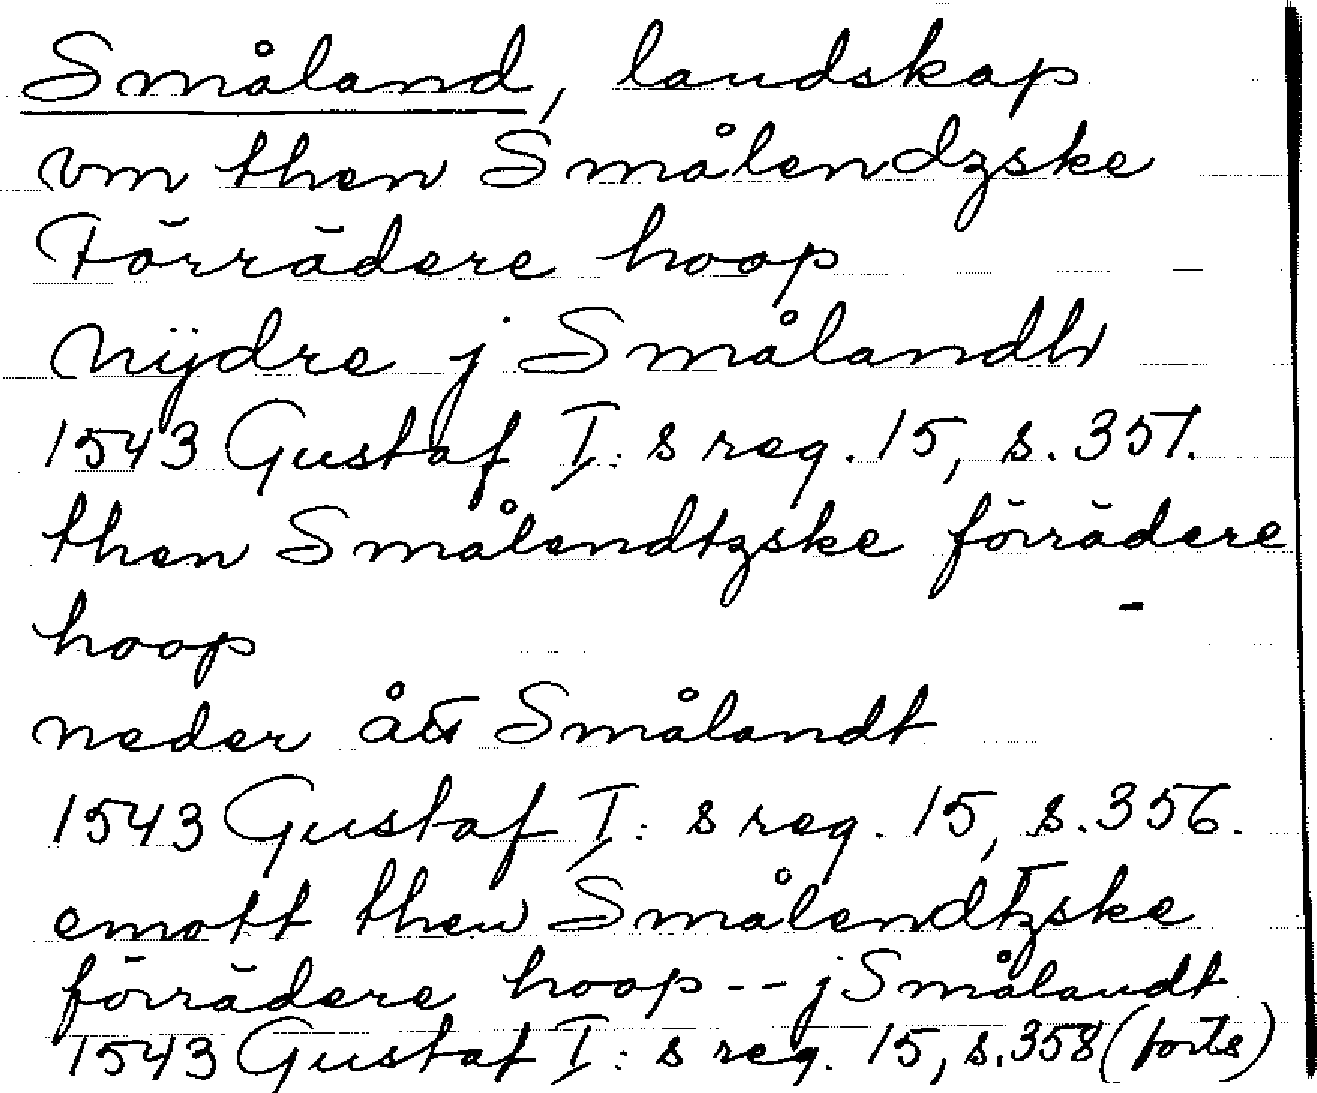 Småland, landskap
vm then Smålendzske
Förrädere hoop
nijdre j Smålandh
1543 Gustaf I:s reg. 15, s. 357.
then Smålendtzske förrädere
hoop
neder ått Smålandt
1543 Gustaf I:s reg. 15, s. 356.
emott then Smålendtzske
förrädere hoop -- j Smålandt
1543 Gustaf I:s reg. 15, s. 358 (forts)